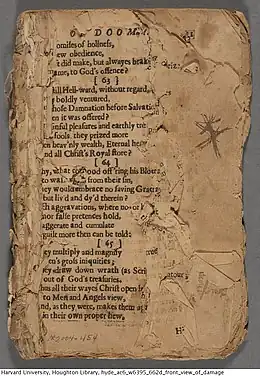 Or DOOM
omises of holiness,
ew obedience,
t did make, but alwayes brake
ame, to God's offence?
[ 63 ]
hill Hell-ward, without regard,
boldy ventured.
hose Damnation before Salvati
en it was offered?
inful pleasures and earthly tre
fools they prized more
en heav'nly wealth, Eternal
nd all Christ's Royal store?
[ 64 ]
hy, what stood off'ring his
to from their sin,
ey would embrace no saving Grace
but liv'd and dy'd therein?
h aggravations, where no
nor false pretences hold,
aggerate and cumulate
guilt more then can be told:
[ 65 ]
ey multiply and magnify
en's gross iniquities;
ey draw down wrath (as Scri
out of God's treasuries.
us all their wayes Christ open
to Men and Angels view,
nd, as they were, makes them
in their own proper hew.
Harvard University, Houghton Library, hyde_ac6_w6395_662d_front_view_of_damage